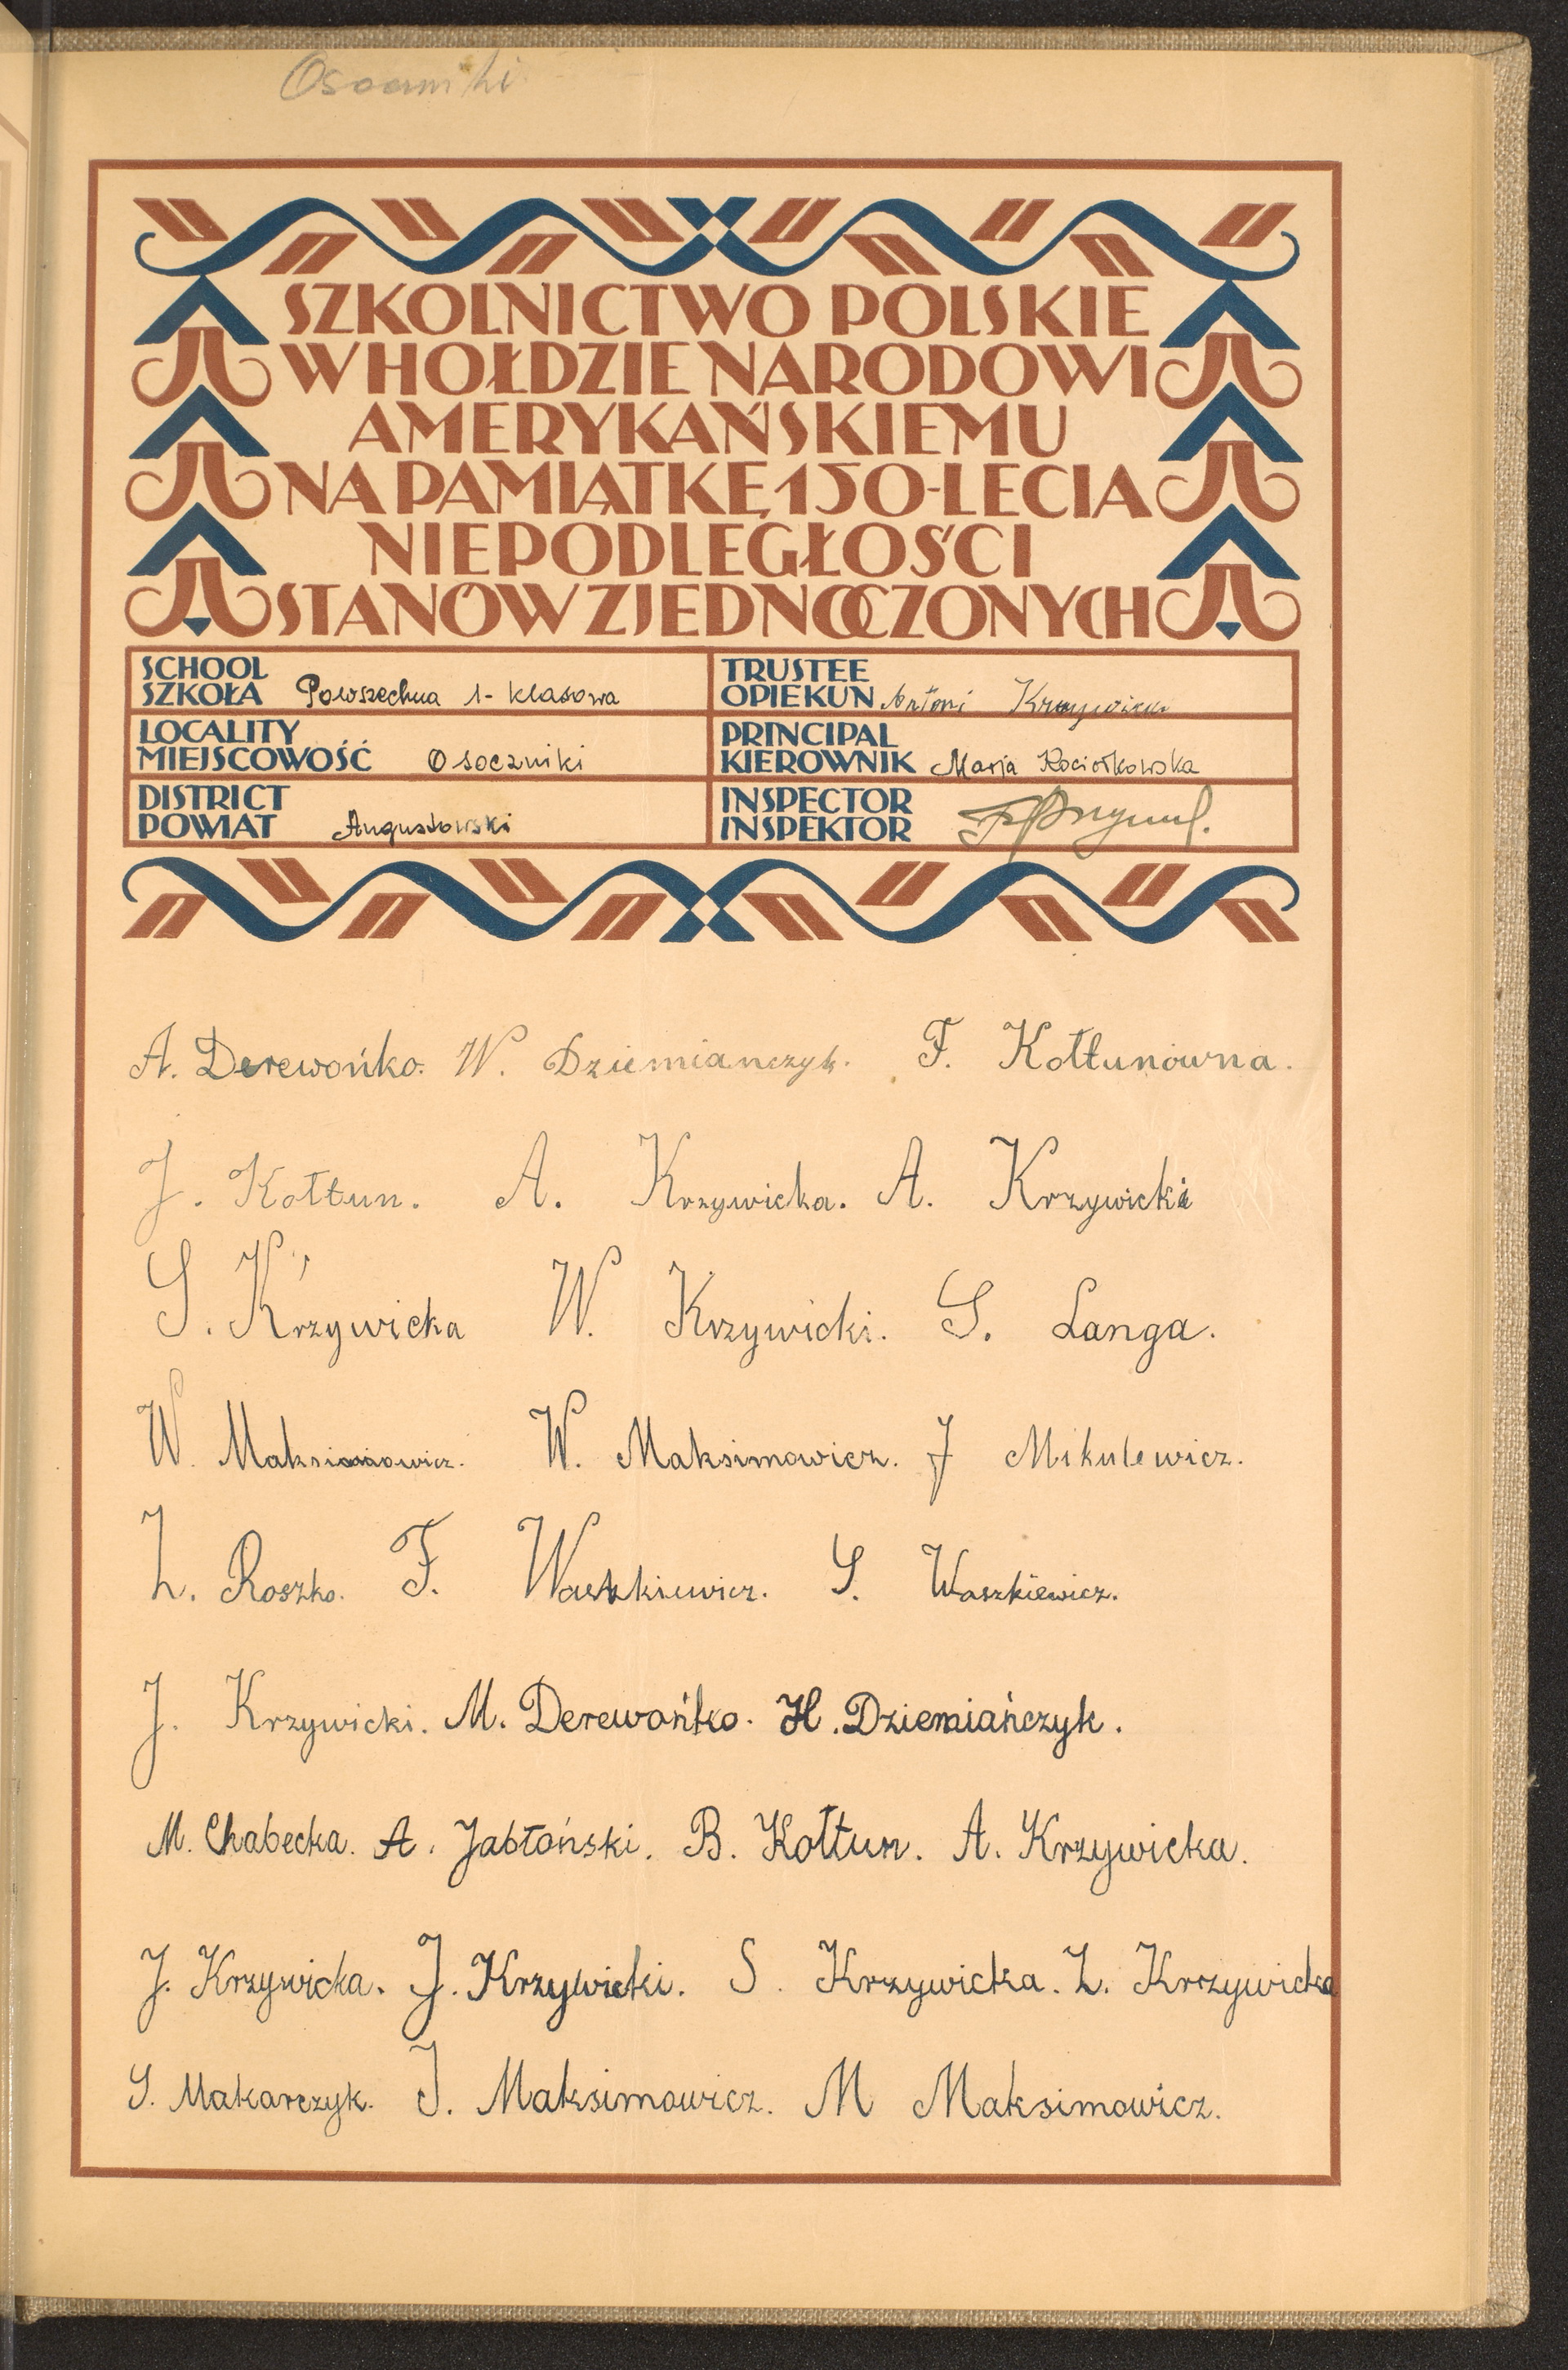 Osoczniki
SZKOLNICTWO POLSKIE
W HOŁDZIE NARODOWI
AMERYKAŃSKIEMU
NA PAMIĄTKĘ 150-LECIA
NIEPODLEGŁOŚCI
STANÓW ZJEDNOCZONYCH
SCHOOL
SZKOŁA Powszechna 1-klasowa
TRUSTEE
OPIEKUN Antoni Krzywicki
LOCALITY
MIEJSCOWOŚĆ Osoczniki
PRINCIPAL
KIEROWNIK Marja Kociołkowska
DISTRICT
POWIAT Augustowski
INSPECTOR
INSPEKTOR
A. Derewońko. W. Dziemianczyk. F. Kołtunówna.
J. Kołtun. A. Krzywicka. A. Krzywicki
S. Krzywicka W. Krzywicki. S. Langa.
W. Maksimowicz. W. Maksimowicz. J Mikulewicz.
L. Roszko. F. Waszkiewicz. S. Waszkiewicz.
J. Krzywicki. M. Derewońko. H. Dziemiańczyk.
M. Chabecka. A. Jabłoński. B. Kołtun. A. Krzywicka.
J. Krzywicka. J. Krzywicki. S. Krzywicka. Z. Krzywicka
S. Makarczyk. J. Maksimowicz. M Maksimowicz.